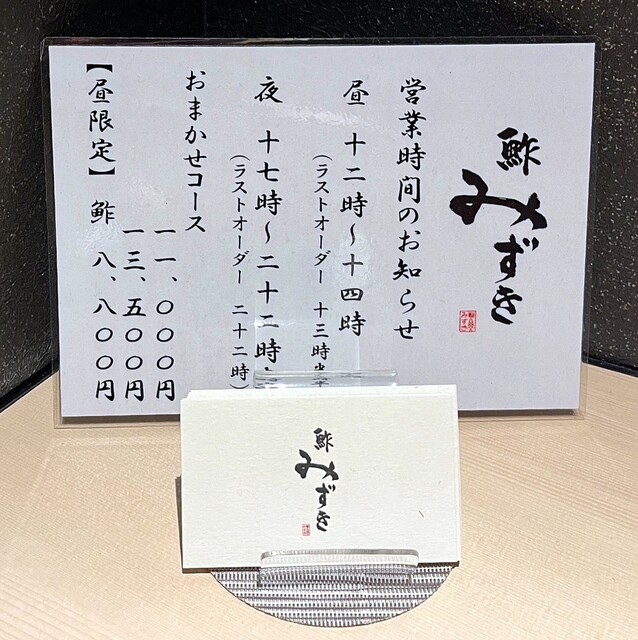 鮓 みずき
営業時間のお知らせ
昼 十二時〜十四時
(ラストオーダー 十三時半
夜 十七時〜二十二時
(ラストオーダー 二十二時)
おまかせコース
一一、〇〇〇円
一三、五〇〇円
【昼限定】 鮓 八、八〇〇円
鮓 みずき